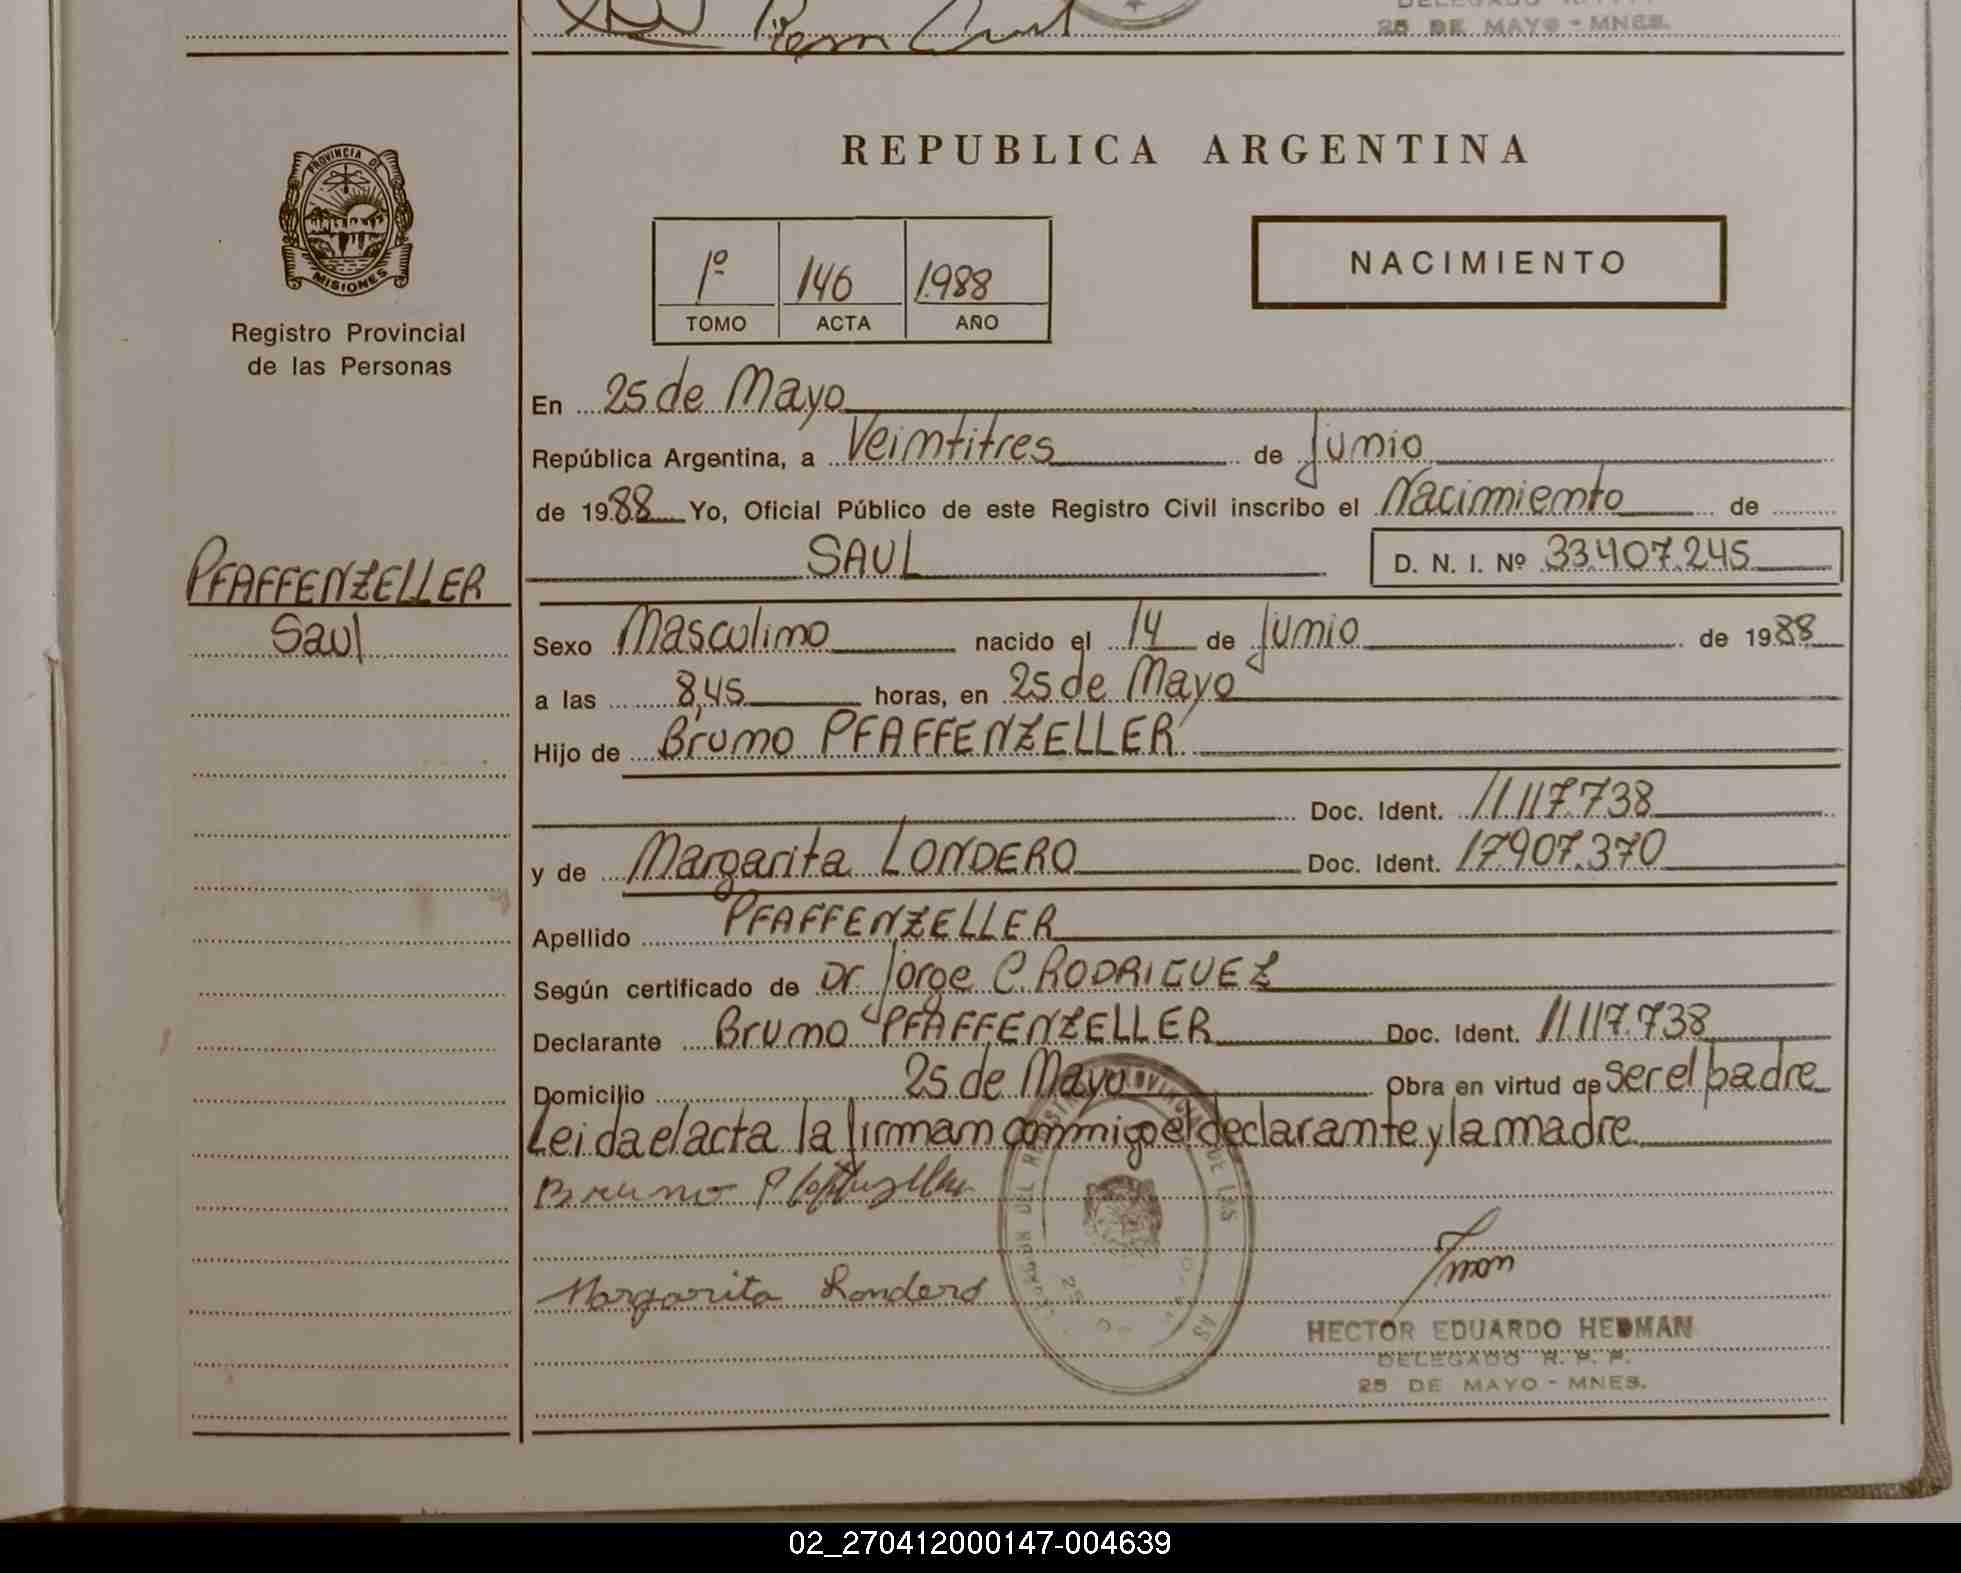 25 DE MAYO - MNES.
PROVINCIA DE
MISIONES
Registro Provincial
de las Personas
PFAFFENZELLER
Saul
REPUBLICA ARGENTINA
1º 146 1988
TOMO ACTA AÑO
NACIMIENTO
En 25 de Mayo
República Argentina, a Veintitres de Junio
de 1988 Yo, Oficial Público de este Registro Civil inscribo el Nacimiento de
SAUL D. N. I. Nº 33.407.245
Sexo Masculino nacido el 14 de Junio de 1988
a las 8,45 horas, en 25 de Mayo
Hijo de Bruno PFAFFENZELLER
Doc. Ident. 11.117.738
y de Margarita LONDERO Doc. Ident. 17.907.370
Apellido PFAFFENZELLER
Según certificado de Dr Jorge C. RODRIGUEZ
Declarante Bruno PFAFFENZELLER Doc. Ident. 11.117.738
Domicilio 25 de Mayo Obra en virtud de ser el padre
Leida el acta la firman conmigo el declarante y la madre
Bruno Pfaffenzeller
Margarita Londero
HECTOR EDUARDO HEDMAN
DELEGADO R. P. P.
25 DE MAYO - MNES.
02_270412000147-004639